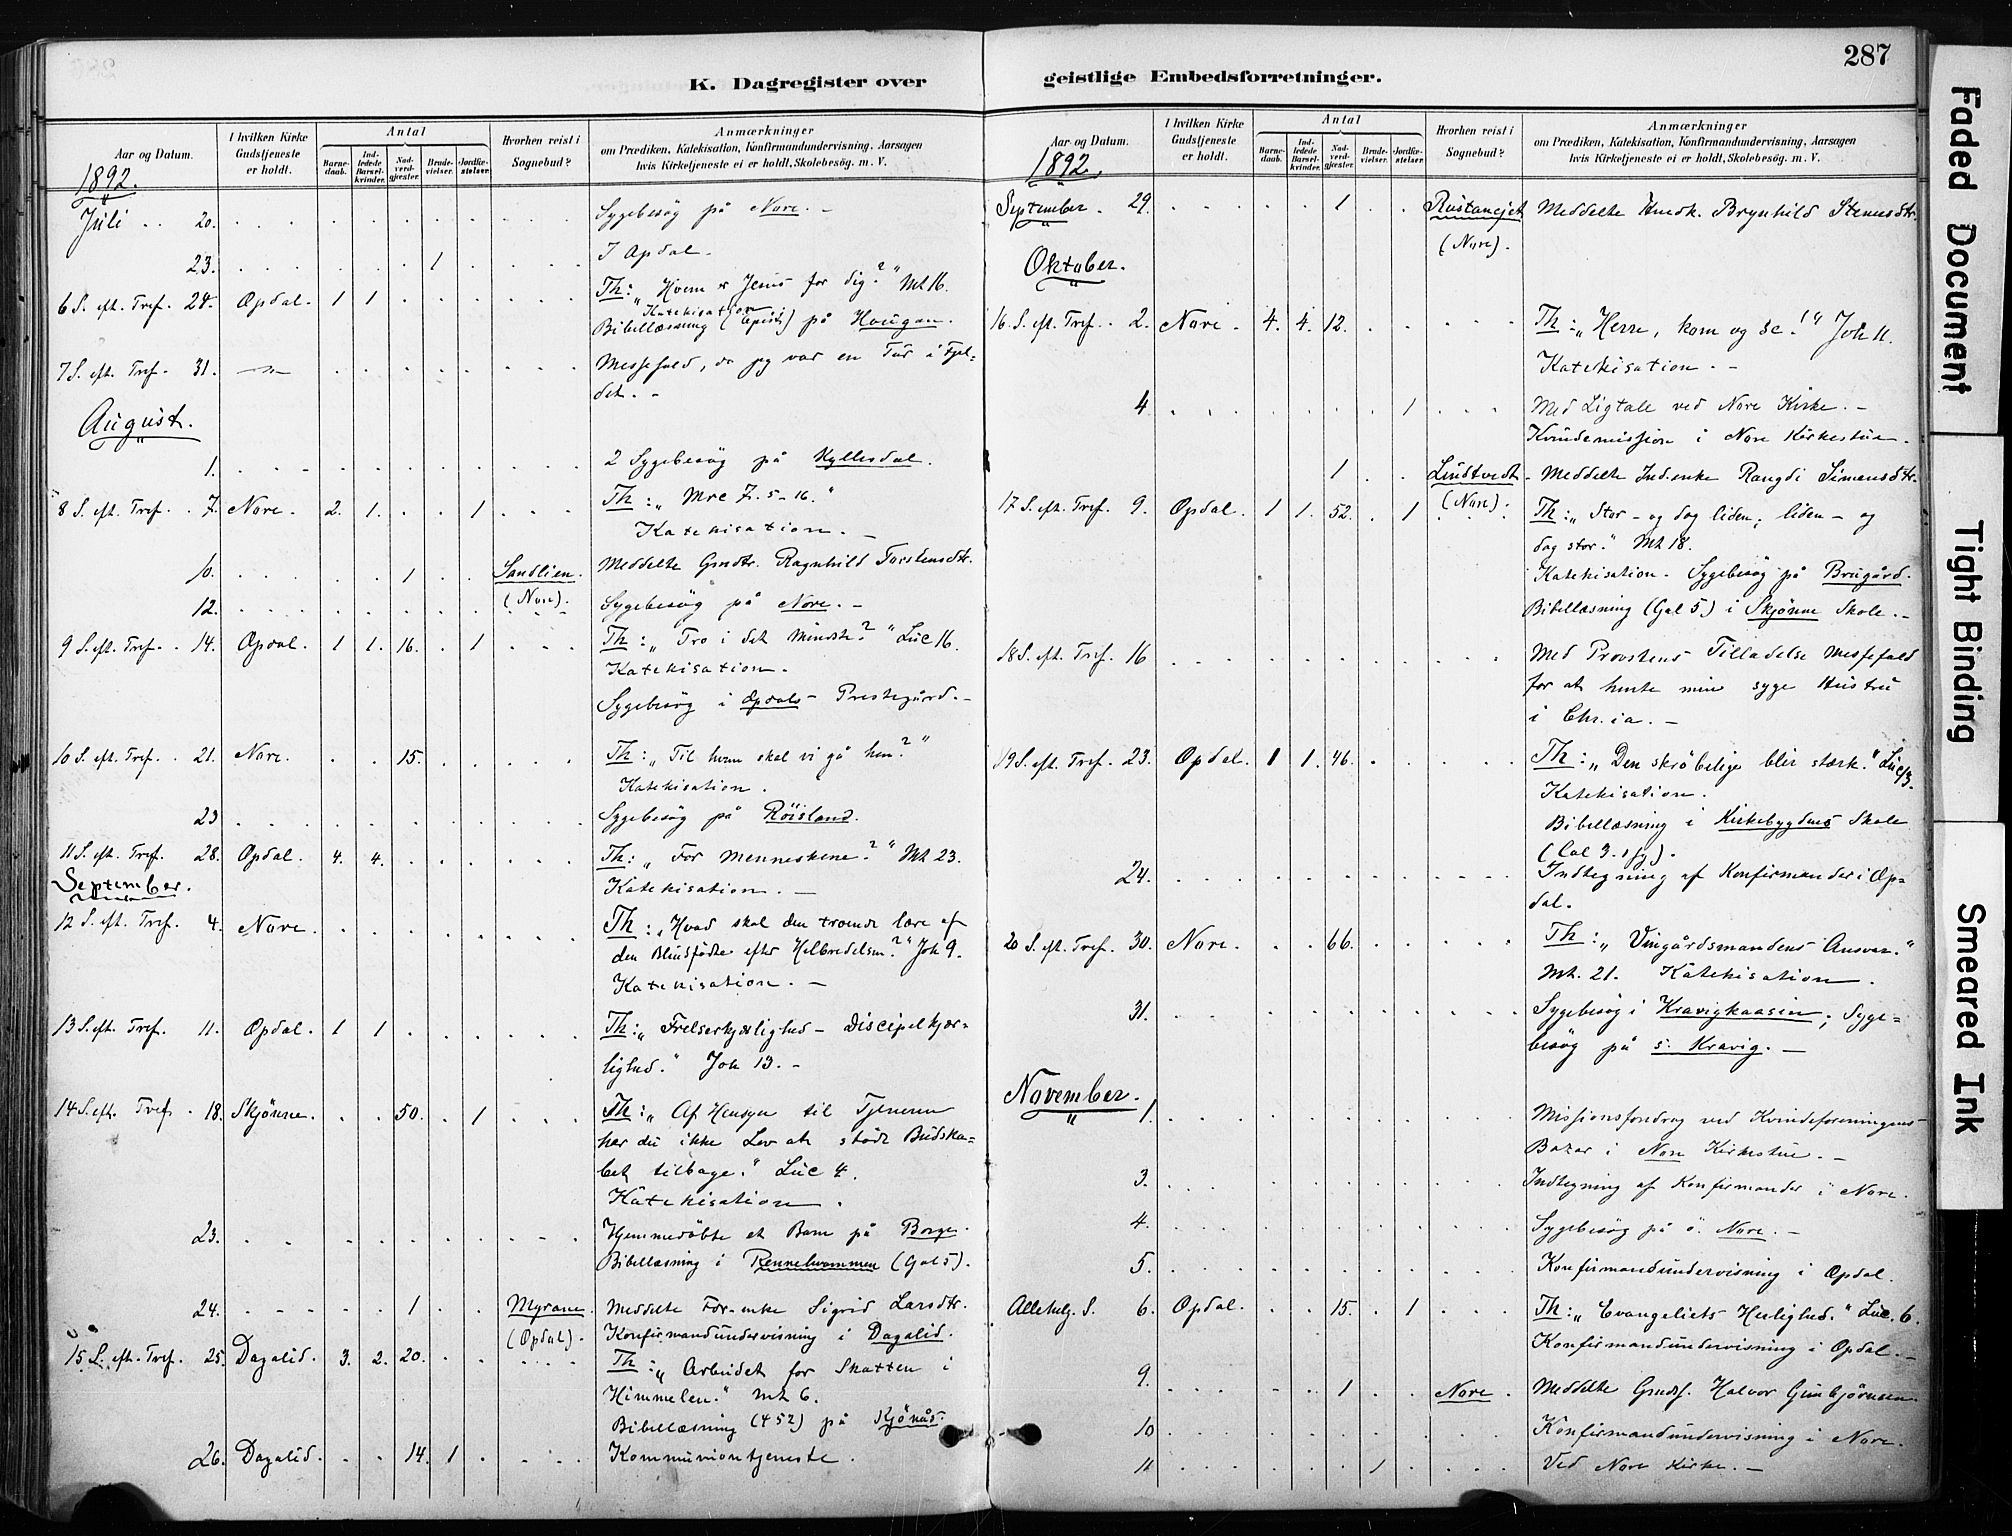 287
K. Dagregister over
Aar og Datum.
I hvilken Kirke Gudstjeneste er holdt.
Antal
Barnedaab.
Indledede Barselkvinder.
Nadverdgjester.
Brudevielser.
Jordfæstelser.
Hvorhen reist i Sognebud?
Anmærkninger
om Prædiken, Katekisation, Konfirmandundervisning, Aarsagen
hvis Kirketjeneste ei er holdt, Skolebesøg. m. V.
1892.
Juli 20. Sygebesøg på Nore. –
23. 1 I Opdal.
6 S. eft. Tref. 24. Opdal. 1 1 Th: „Hvem er Jesus for dig?“ Mt 16.
Katekisation
Bibellæsning på Haugan.
7 S. eft. Tref. 31. Messefald, da jeg var en Tur i Fjel-
det. –
August.
1. 2 Sygebesøg på
8 S. eft. Tref. 7. Nore. 2. 1. 1 Th: „Mrc 7. 5–16.“
Katekisation. –
10. 1 Sandlien. Meddelte Gmdtr. Ragnhild Torstensdtr.
(Nore).
12. Sygebesøg på Nore. –
9 S. eft. Tref. 14. Opdal. 1 1. 16. 1 Th: „Tro i det Mindste?“ Luc 16.
Katekisation.
Sygebesøg i Opdals Prestegård. –
10 S. eft. Tref. 21. Nore. 15. Th: „Til hvem skal vi gå hen?“
Katekisation.
23 Sygebesøg på Röisland.
11 S. eft. Tref. 28. Opdal. 4. 4. Th: „For Menneskene?“ Mt 23.
Katekisation. –
September.
12 S. eft. Tref. 4. Nore. Th: „Hvad skal den troende lære af
den Blindfødte efter Helbredelsen?“ Joh 9.
Katekisation. –
13 S. eft. Tref. 11. Opdal. 1 1 Th: „Frelserkjærlighed – Discipelkjær-
lighed.“ Joh 13. –
14 S. eft. Tref. 18. Skjönne. 50. 1 Th: „Af Hensyn til Tjeneren
har du ikke Lov at støde Budska-
bet tilbage.“ Luc 4.
Katekisation.
23. Hjemmedöbte et Barn på Borge.
Bibellæsning i Rennehvammen (Gal 5).
24. 1 Myrane. Meddelte For-enke Sigrid Larsdtr.
(Opdal). Konfirmandundervisning i Dagalid.
15 S. eft. Tref. 25. Dagalid. 3. 2. 20. Th: „Arbeidet for Skatten i
Himmelen.“ Mt 6.
Bibellæsning på Kjönås.
26. Dagalid. 14. 1 Kommuniontjeneste.
geistlige Embedsforretninger.
Aar og Datum.
I hvilken Kirke Gudstjeneste er holdt.
Antal
Barnedaab.
Indledede Barselkvinder.
Nadverdgjester.
Brudevielser.
Jordfæstelser.
Hvorhen reist i Sognebud?
Anmærkninger
om Prædiken, Katekisation, Konfirmandundervisning, Aarsagen
hvis Kirketjeneste ei er holdt, Skolebesøg. m. V.
1892.
September. 29. 1 Rustanejet Meddelte Brynhild Stensdtr.
(Nore).
Oktober.
16. S. eft. Tref. 2. Nore 4. 4. 12. Th: „Herre, kom og se!“ Joh 11.
Katekisation. –
4 1 Med Ligtale ved Nore Kirke. –
Kvindemission i Nore Kirkestue.
1 Lindtvedt Meddelte Ind.enke Rangdi Simensdtr.
(Nore).
17 S. eft. Tref. 9. Opdal. 1 1. 52. 1 Th: „Stor – og dog liden, liden – og
dog stor.“ Mt 18.
Katekisation. Sygebesøg på Brugård.
Bibellæsning (Gal 5) i Skjönne Skole. –
18 S. eft. Tref. 16 Med Provstens Tilladelse Messefald
for at hente min syge Hustru
i Chr.ia. –
19 S. eft. Tref. 23. Opdal. 1 1. 46. Th: „Den skröbelige blir stærk.“ Luc 13.
Katekisation.
Bibellæsning i Kirkebygdens Skole
(Col 3. 1 fg).
24. Indtegning af Konfirmander i Op-
dal.
20 S. eft. Tref. 30. Nore. 66. Th: „Vingårdsmandens Ansvar.“
Mt. 21. Katekisation.
31. Sygebesøg i Kravigkaasin; Syge-
besøg på s. Kravig. –
November.
1. Missionsfordrag ved Kvindeforeningens
Bazar i Nore Kirkestue. –
3. Indtegning af Konfirmander i Nore.
4. Sygebesøg på ö. Nore. –
5. Konfirmandundervisning i Opdal.
Allehelg. S. 6. Opdal. 15. 1 Th: „Evangeliets Herlighed.“ Luc. 6.
Konfirmandundervisning i Opdal. –
9. 1 Nore. Meddelte Halvor Gunbjörnsen.
10 Konfirmandundervisning i Nore.
11 1 Ved Nore Kirke. –
Faded Document
Tight Binding
Smeared Ink